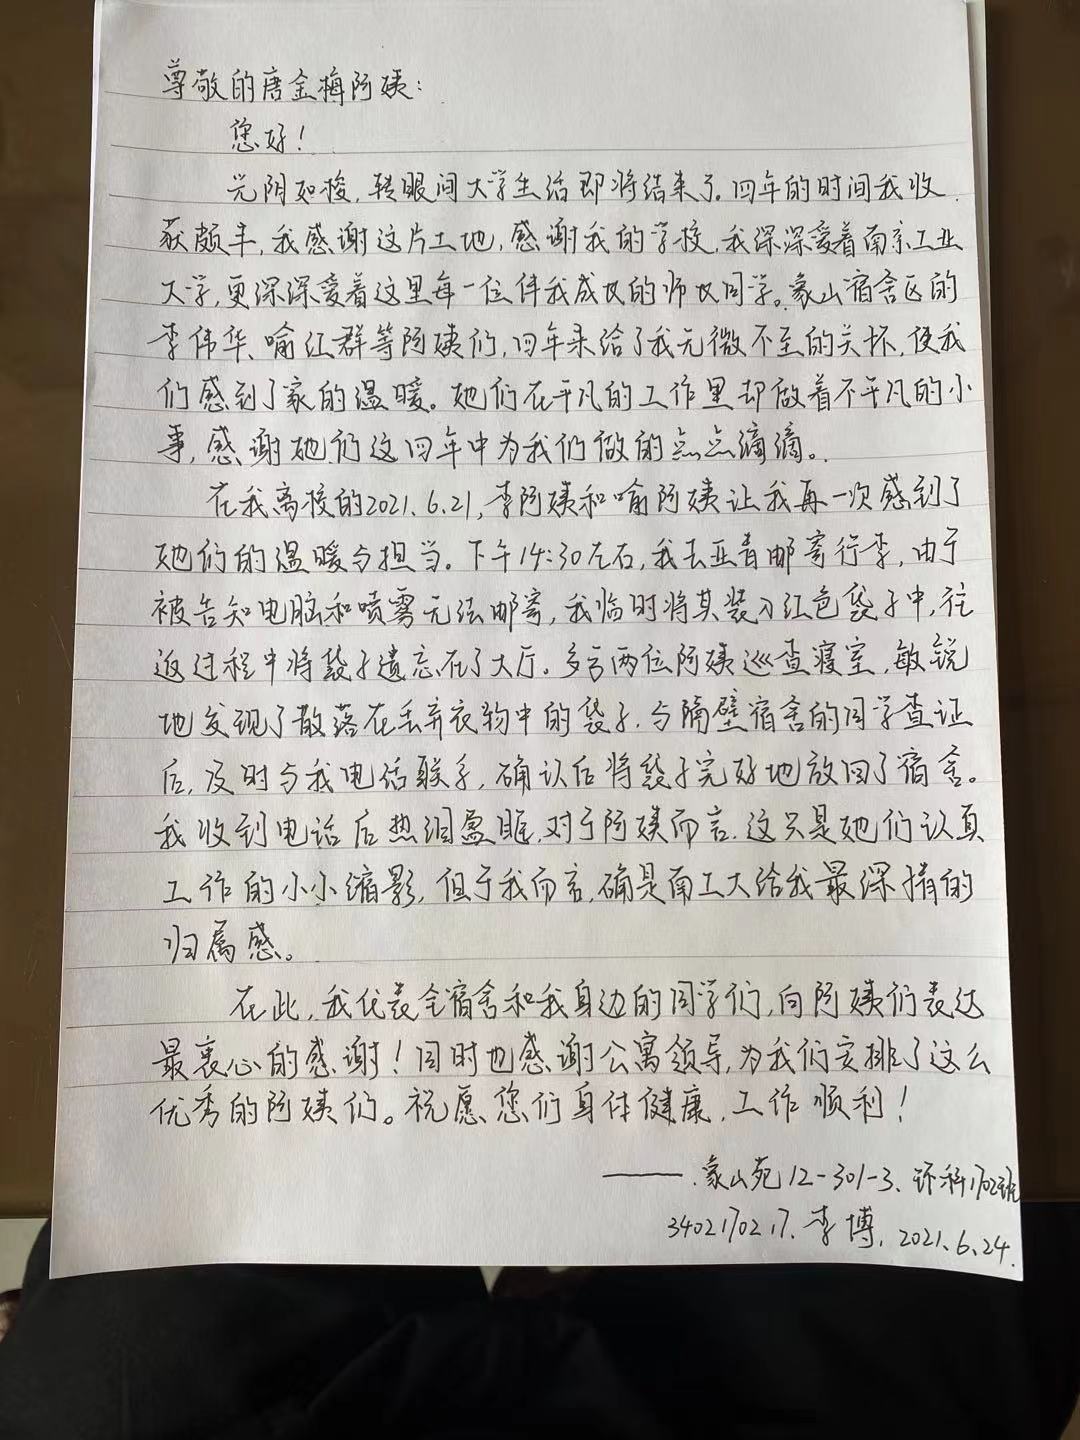 尊敬的唐金梅阿姨：
您好！
光阴如梭，转眼间大学生活即将结束了。四年的时间我收
获颇丰，我感谢这片土地，感谢我的学校，我深深爱着南京工业
大学，更深深爱着这里每一位伴我成长的师友同学。象山宿舍区的
李伟华、喻红群等阿姨们，四年来给了我无微不至的关怀，使我
们感到了家的温暖。她们在平凡的工作里却做着不平凡的小
事，感谢她们这四年中为我们做的点点滴滴。
在我离校的2021.6.21，李阿姨和喻阿姨让我再一次感到了
她们的温暖与担当。下午14:30左右，我去亚青邮寄行李，由于
被告知电脑和喷雾无法邮寄，我临时将其装入红色袋子中，往
返过程中将袋子遗忘在了大厅。多亏两位阿姨巡查寝室，敏锐
地发现了散落在丢弃衣物中的袋子，与隔壁宿舍的同学查证
后，及时与我电话联系，确认后将袋子完好地放回了宿舍。
我收到电话后热泪盈眶，对于阿姨而言，这只是她们认真
工作的小小缩影，但于我而言，确是南工大给我最深情的
归属感。
在此，我代表全宿舍和我身边的同学们，向阿姨们表达
最衷心的感谢！同时也感谢公寓领导，为我们安排了这么
优秀的阿姨们。祝愿您们身体健康，工作顺利！
——象山苑12-301-3、环科1702班
3402170217.李博，2021.6.24.